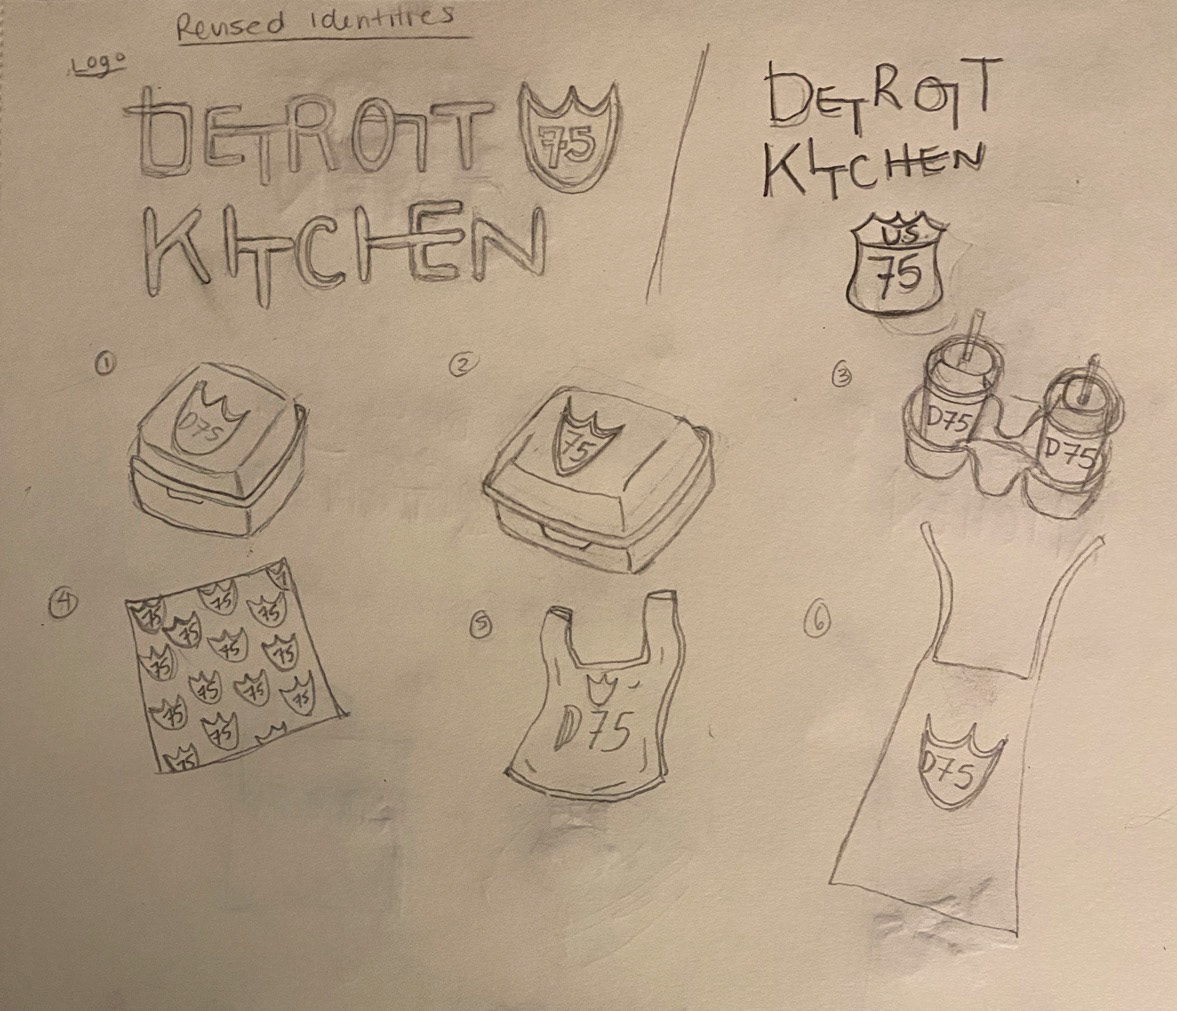 Revised Identities
Logo
DETROIT
75
KITCHEN
DETROIT
KITCHEN
US
75
1
D75
2
75
3
D75
D75
4
75
75
75
75
75
75
75
75
75
75
75
75
75
5
D75
6
D75